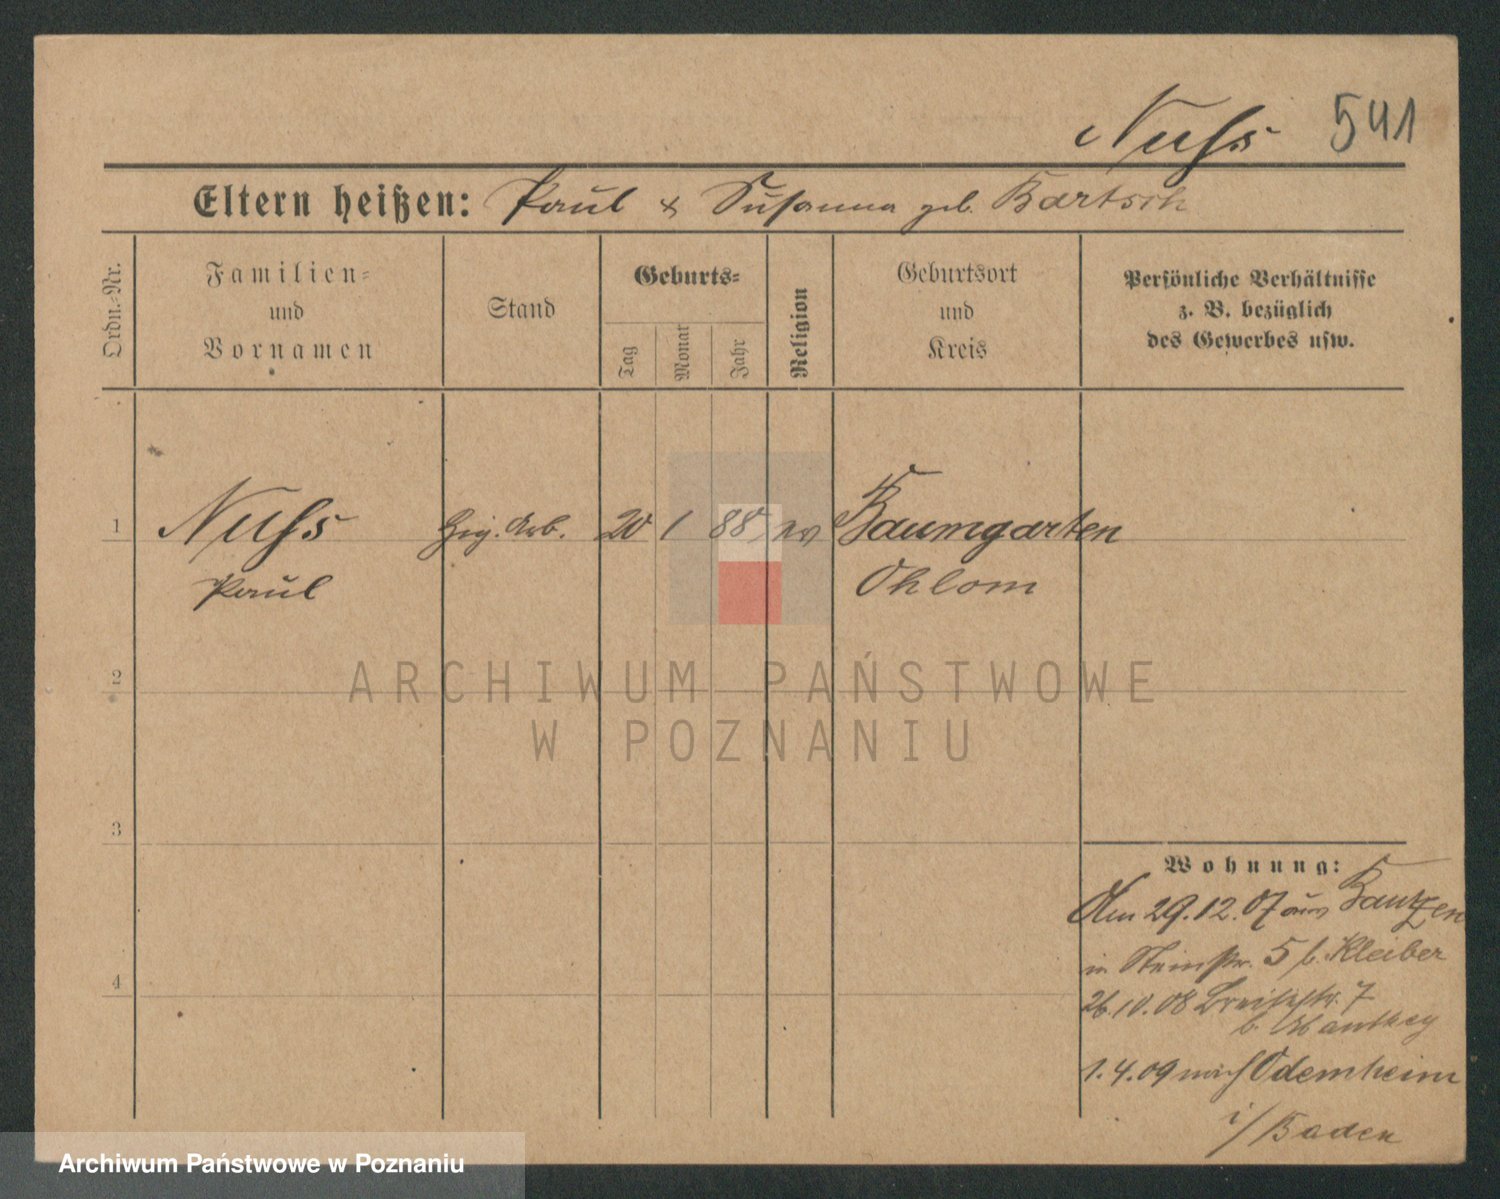 Nuss 541
Eltern heißen: Paul & Susanna geb. Bartsch
Ordn.-Nr.
Familien-
und
Vornamen
Stand
Geburts-
Tag
Monat
Jahr
Religion
Geburtsort
und
Kreis
Persönliche Verhältnisse
z. B. bezüglich
des Gewerbes usw.
1 Nuss Zig. Arb. 20 1 88 ev Baumgarten
Paul Ohlom
ARCHIWUM PAŃSTWOWE
W POZNANIU
2
3
4
Wohnung:
Am 29.12.07 aus Bautzen
in Steinstr. 5 b. Kleiber
26.10.08 Breitestr. 7
b. Manthey
1.4.09 nach Odemheim
i/Baden
Archiwum Państwowe w Poznaniu